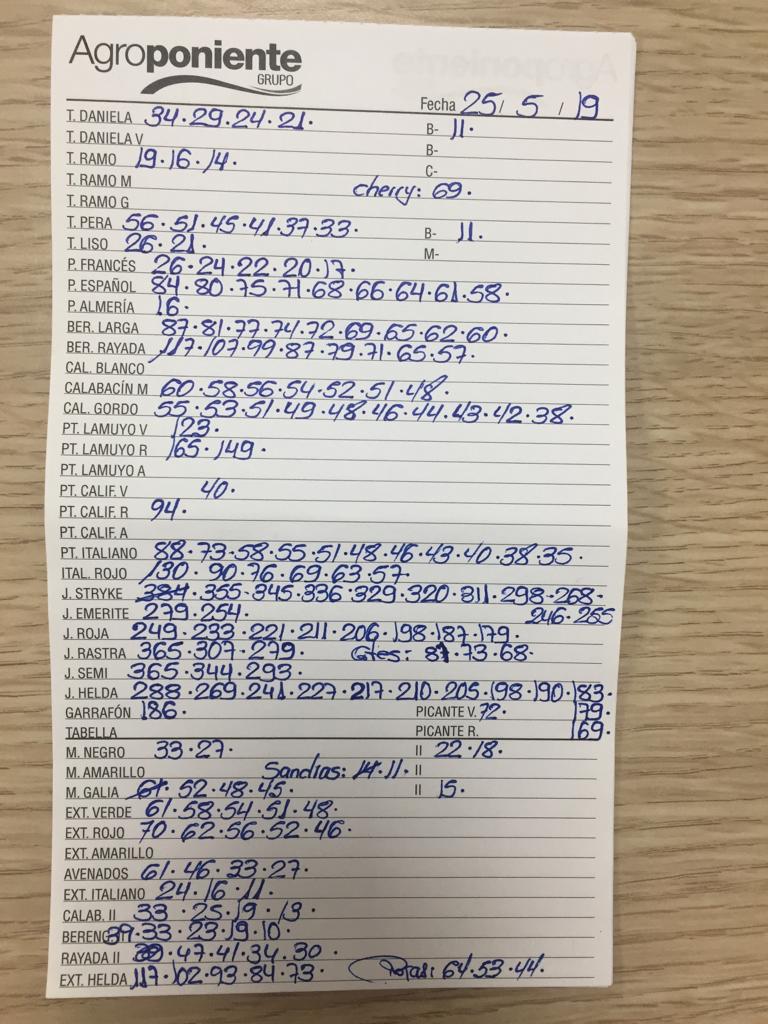 Agroponiente
GRUPO
Fecha 25/ 5 / 19
T. DANIELA 34·29·24·21· B- 11·
T. DANIELA V B-
T. RAMO 19·16·14· C-
T. RAMO M cherry: 69·
T. RAMO G
T. PERA 56·51·45·41·37·33· B- 11·
T. LISO 26·21· M-
P. FRANCÉS 26·24·22·20·17·
P. ESPAÑOL 84·80·75·71·68·66·64·61·58·
P. ALMERÍA 16·
BER. LARGA 87·81·77·74·72·69·65·62·60·
BER. RAYADA 117·107·99·87·79·71·65·57·
CAL. BLANCO
CALABACÍN M 60·58·56·54·52·51·48·
CAL. GORDO 55·53·51·49·48·46·44·43·42·38·
PT. LAMUYO V 123·
PT. LAMUYO R 165·149·
PT. LAMUYO A
PT. CALIF. V 40·
PT. CALIF. R 94·
PT. CALIF. A
PT. ITALIANO 88·73·58·55·51·48·46·43·40·38·35·
ITAL. ROJO 130·90·76·69·63·57·
J. STRYKE 384·355·345·336·329·320·311·298·268·
J. EMERITE 279·254· 246·265
J. ROJA 249·233·221·211·206·198·187·179·
J. RASTRA 365·307·279· Gtes: 81·73·68·
J. SEMI 365·344·293·
J. HELDA 288·269·241·227·217·210·205·198·190·183·
GARRAFÓN 186· PICANTE V. 72· 179·
TABELLA PICANTE R. 169·
M. NEGRO 33·27· II 22·18·
M. AMARILLO Sandias: 14·11· II
M. GALIA 61· 52·48·45· II 15·
EXT. VERDE 61·58·54·51·48·
EXT. ROJO 70·62·56·52·46·
EXT. AMARILLO
AVENADOS 61·46·33·27·
EXT. ITALIANO 24·16·11·
CALAB. II 33·25·19·13·
BERENG 39·33·23·19·10·
RAYADA II 47·41·34·30·
EXT. HELDA 117·102·93·84·73· Rotas: 64·53·44·